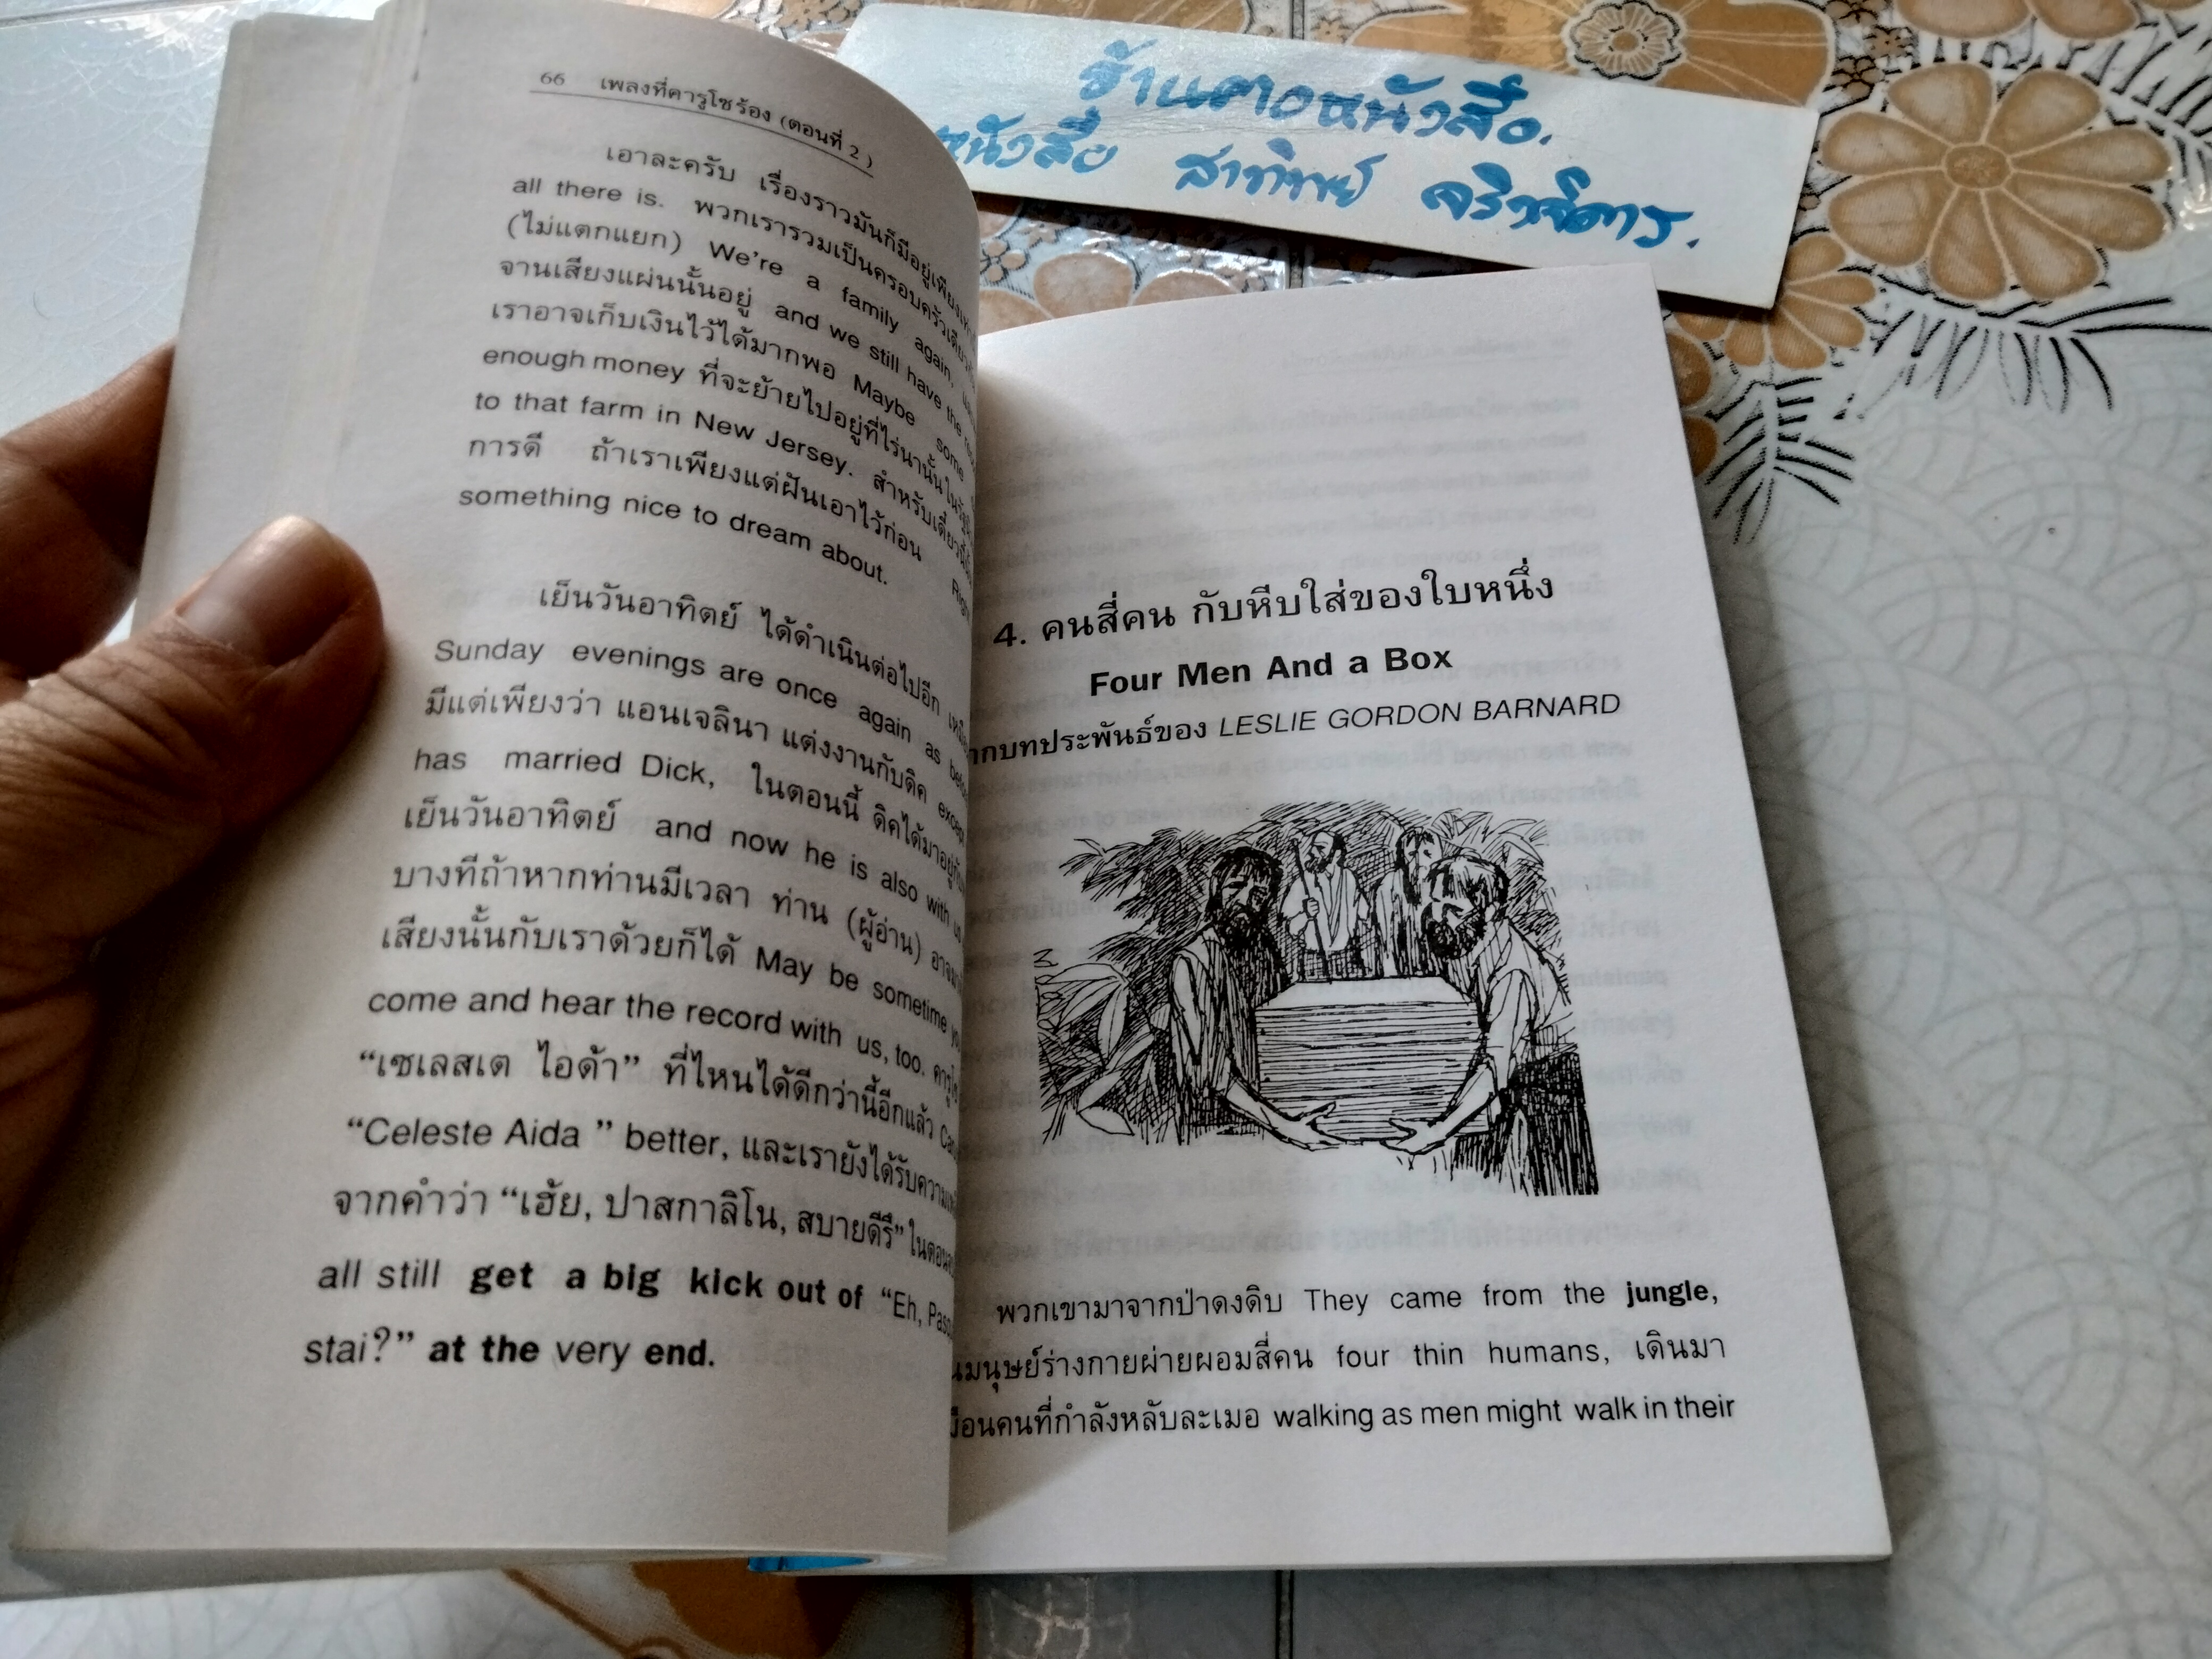 ร้านศาลหนังสือ.
หนังสือ สาทิตย์
66 เพลงที่คารูโซร้อง (ตอนที่ 2)
เอาละครับ เรื่องราวมันก็มีอยู่เพียง
all there is. พวกเรารวมเป็นครอบครัวเดียว
(ไม่แตกแยก) We're a family again,
จานเสียงแผ่นนั้นอยู่ and we still have the
เราอาจเก็บเงินไว้ได้มากพอ Maybe some
enough money ที่จะย้ายไปอยู่ที่ไร่นานั้นใน
to that farm in New Jersey. สำหรับเดี๋ยวนี้
การดี ถ้าเราเพียงแต่ฝันเอาไว้ก่อน
something nice to dream about.
เย็นวันอาทิตย์ ได้ดำเนินต่อไปอีก
Sunday evenings are once again as
มีแต่เพียงว่า แอนเจลินา แต่งงานกับดิค except
has married Dick, ในตอนนี้ ดิคได้มาอยู่
เย็นวันอาทิตย์ and now he is also with us
บางทีถ้าหากท่านมีเวลา ท่าน (ผู้อ่าน)
เสียงนั้นกับเราด้วยก็ได้ May be sometime
come and hear the record with us, too.
“เซเลสเต ไอด้า” ที่ไหนได้ดีกว่านี้อีกแล้ว
“Celeste Aida ” better, และเรายังได้รับ
จากคำว่า “เฮ้ย, ปาสกาลิโน, สบายดีรึ”
all still get a big kick out of “Eh,
stai?” at the very end.
4. คนสี่คน กับหีบใส่ของใบหนึ่ง
Four Men And a Box
บทประพันธ์ของ LESLIE GORDON BARNARD
พวกเขามาจากป่าดงดิบ They came from the jungle,
มนุษย์ร่างกายผ่ายผอมสี่คน four thin humans, เดินมา
คนที่กำลังหลับละเมอ walking as men might walk in their